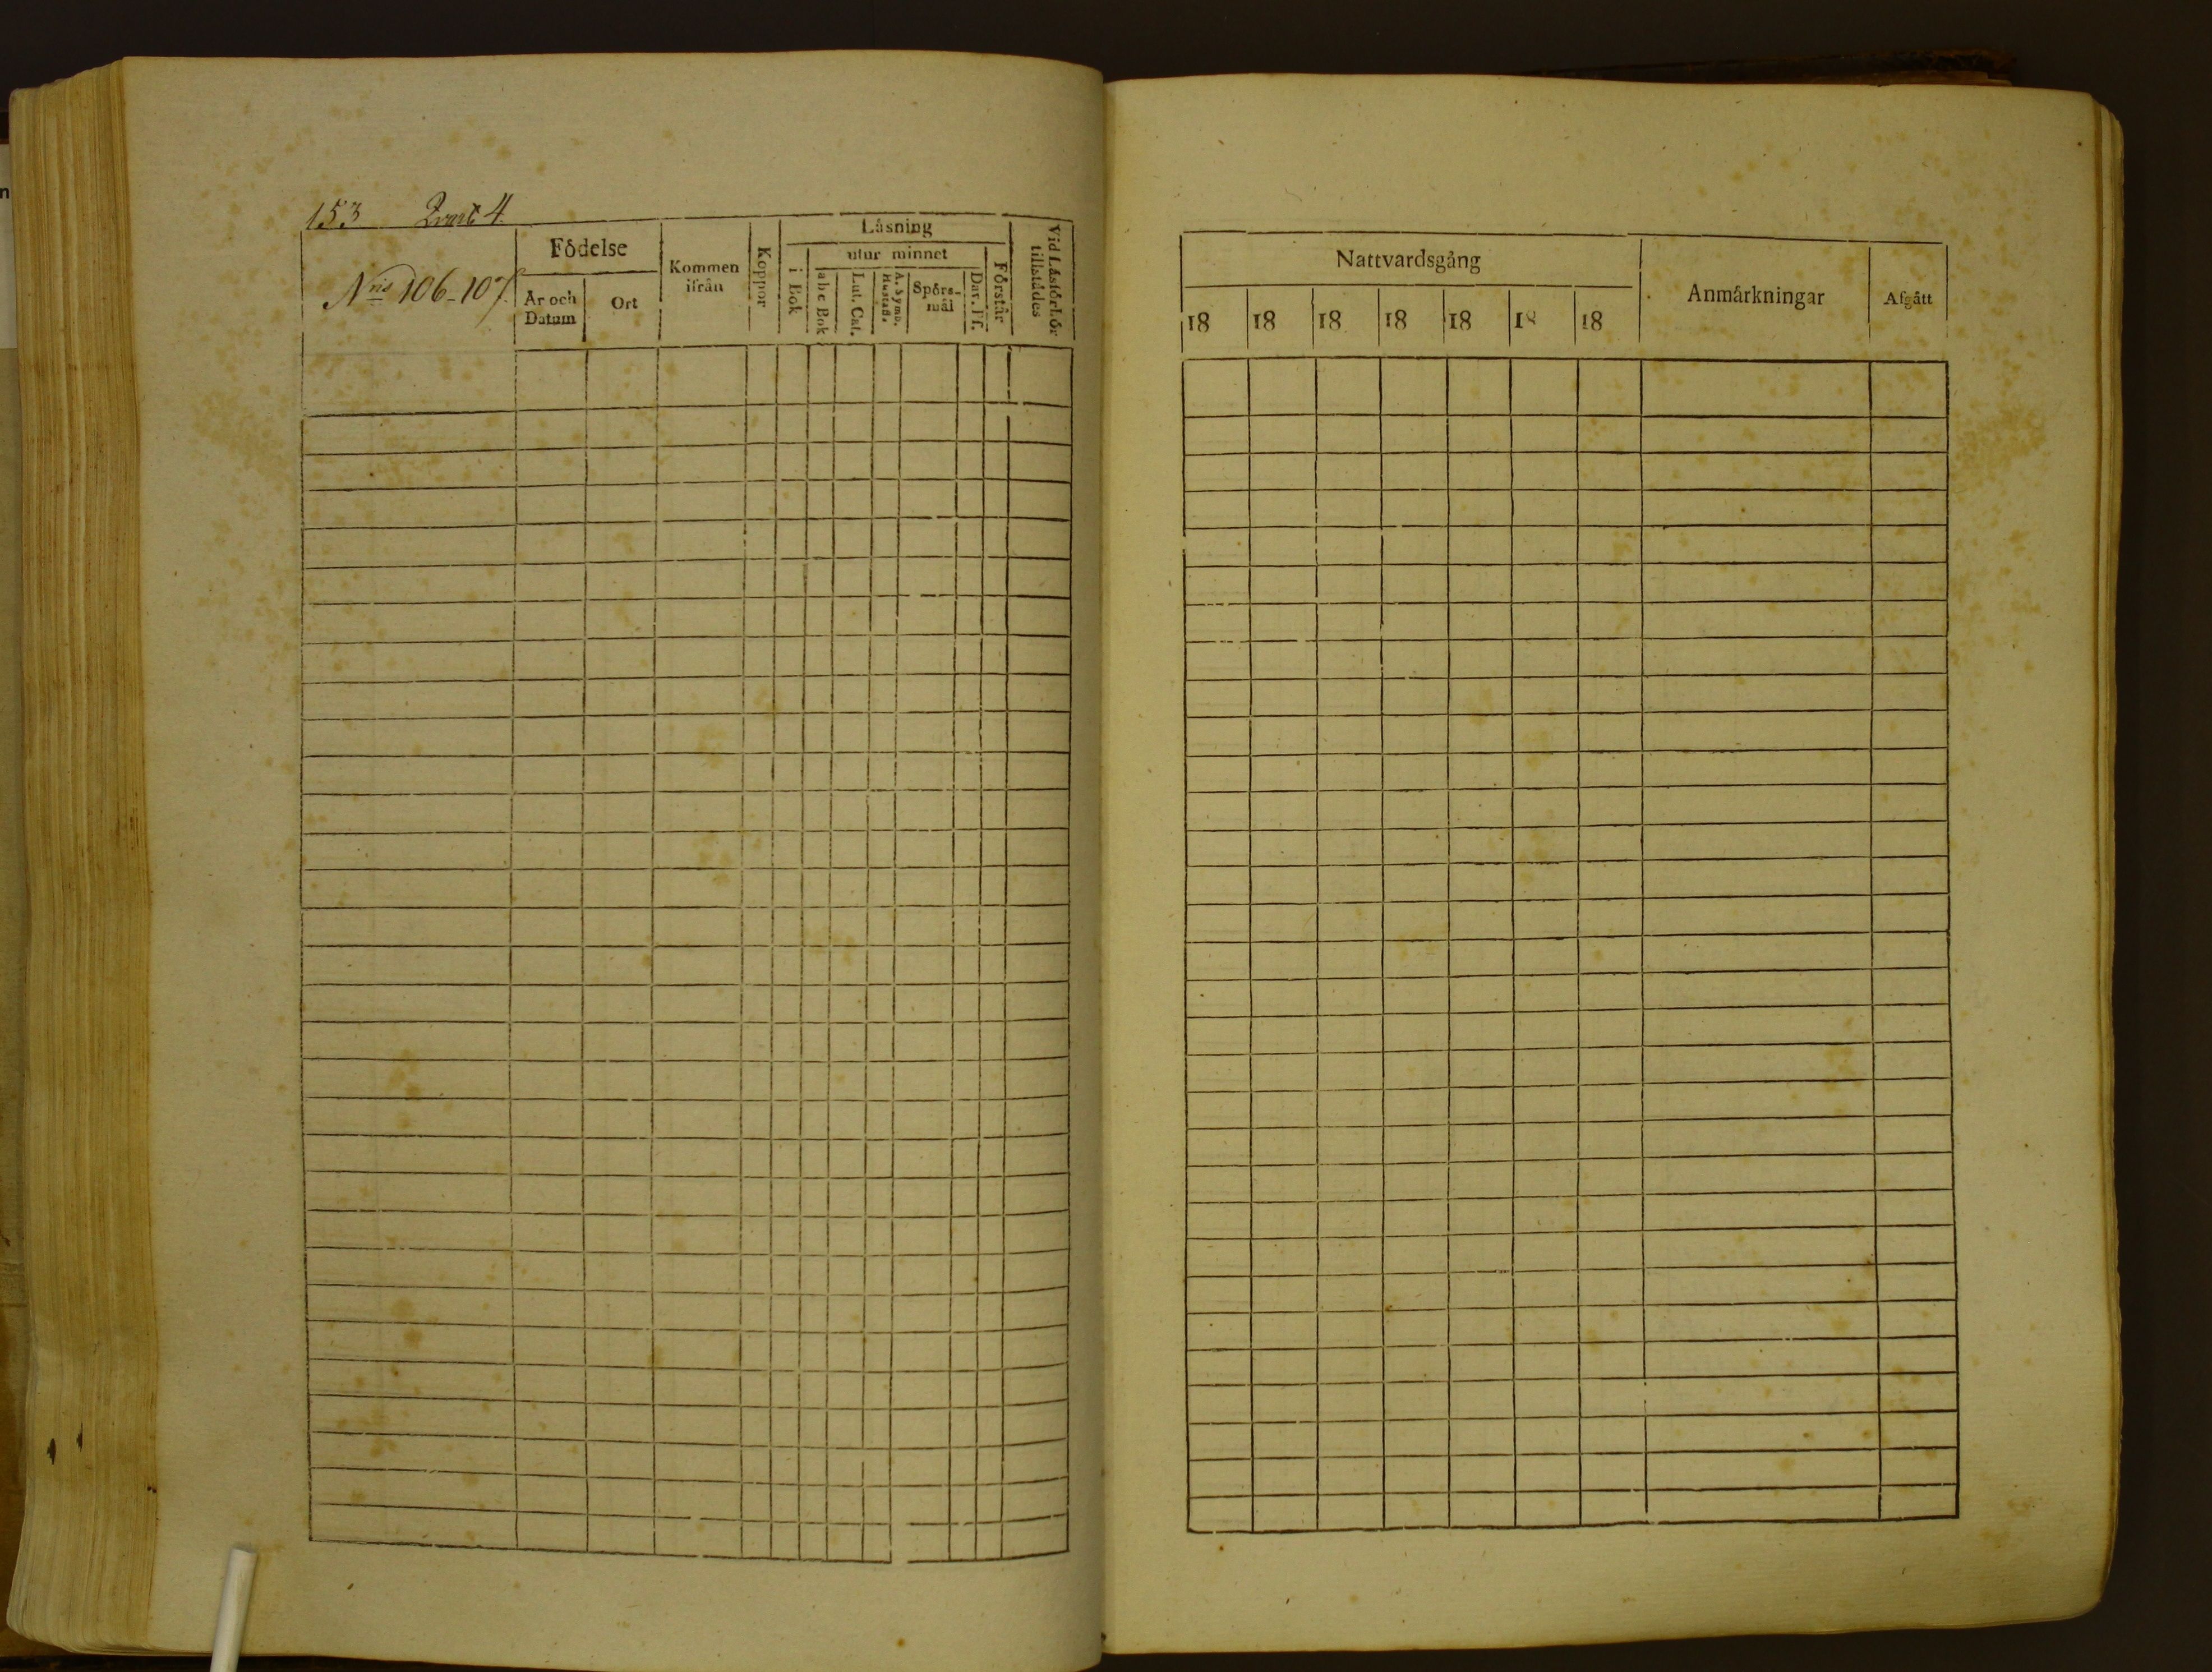 153 Qvart 4.
Nris 106-107.
Födelse
År och
Datum
Ort
Kommen
ifrån
Koppor
Läsning
i Bok
utur minnet
abc Bok
Lut. Cat.
A. Symb.
Hustafl.
Spörs-
mål
Dav. Ps.
Förstår
Vid Läsförhör
tillstädes
Nattvardsgång
18 18 18 18 18 18 18
Anmärkningar
Afgått